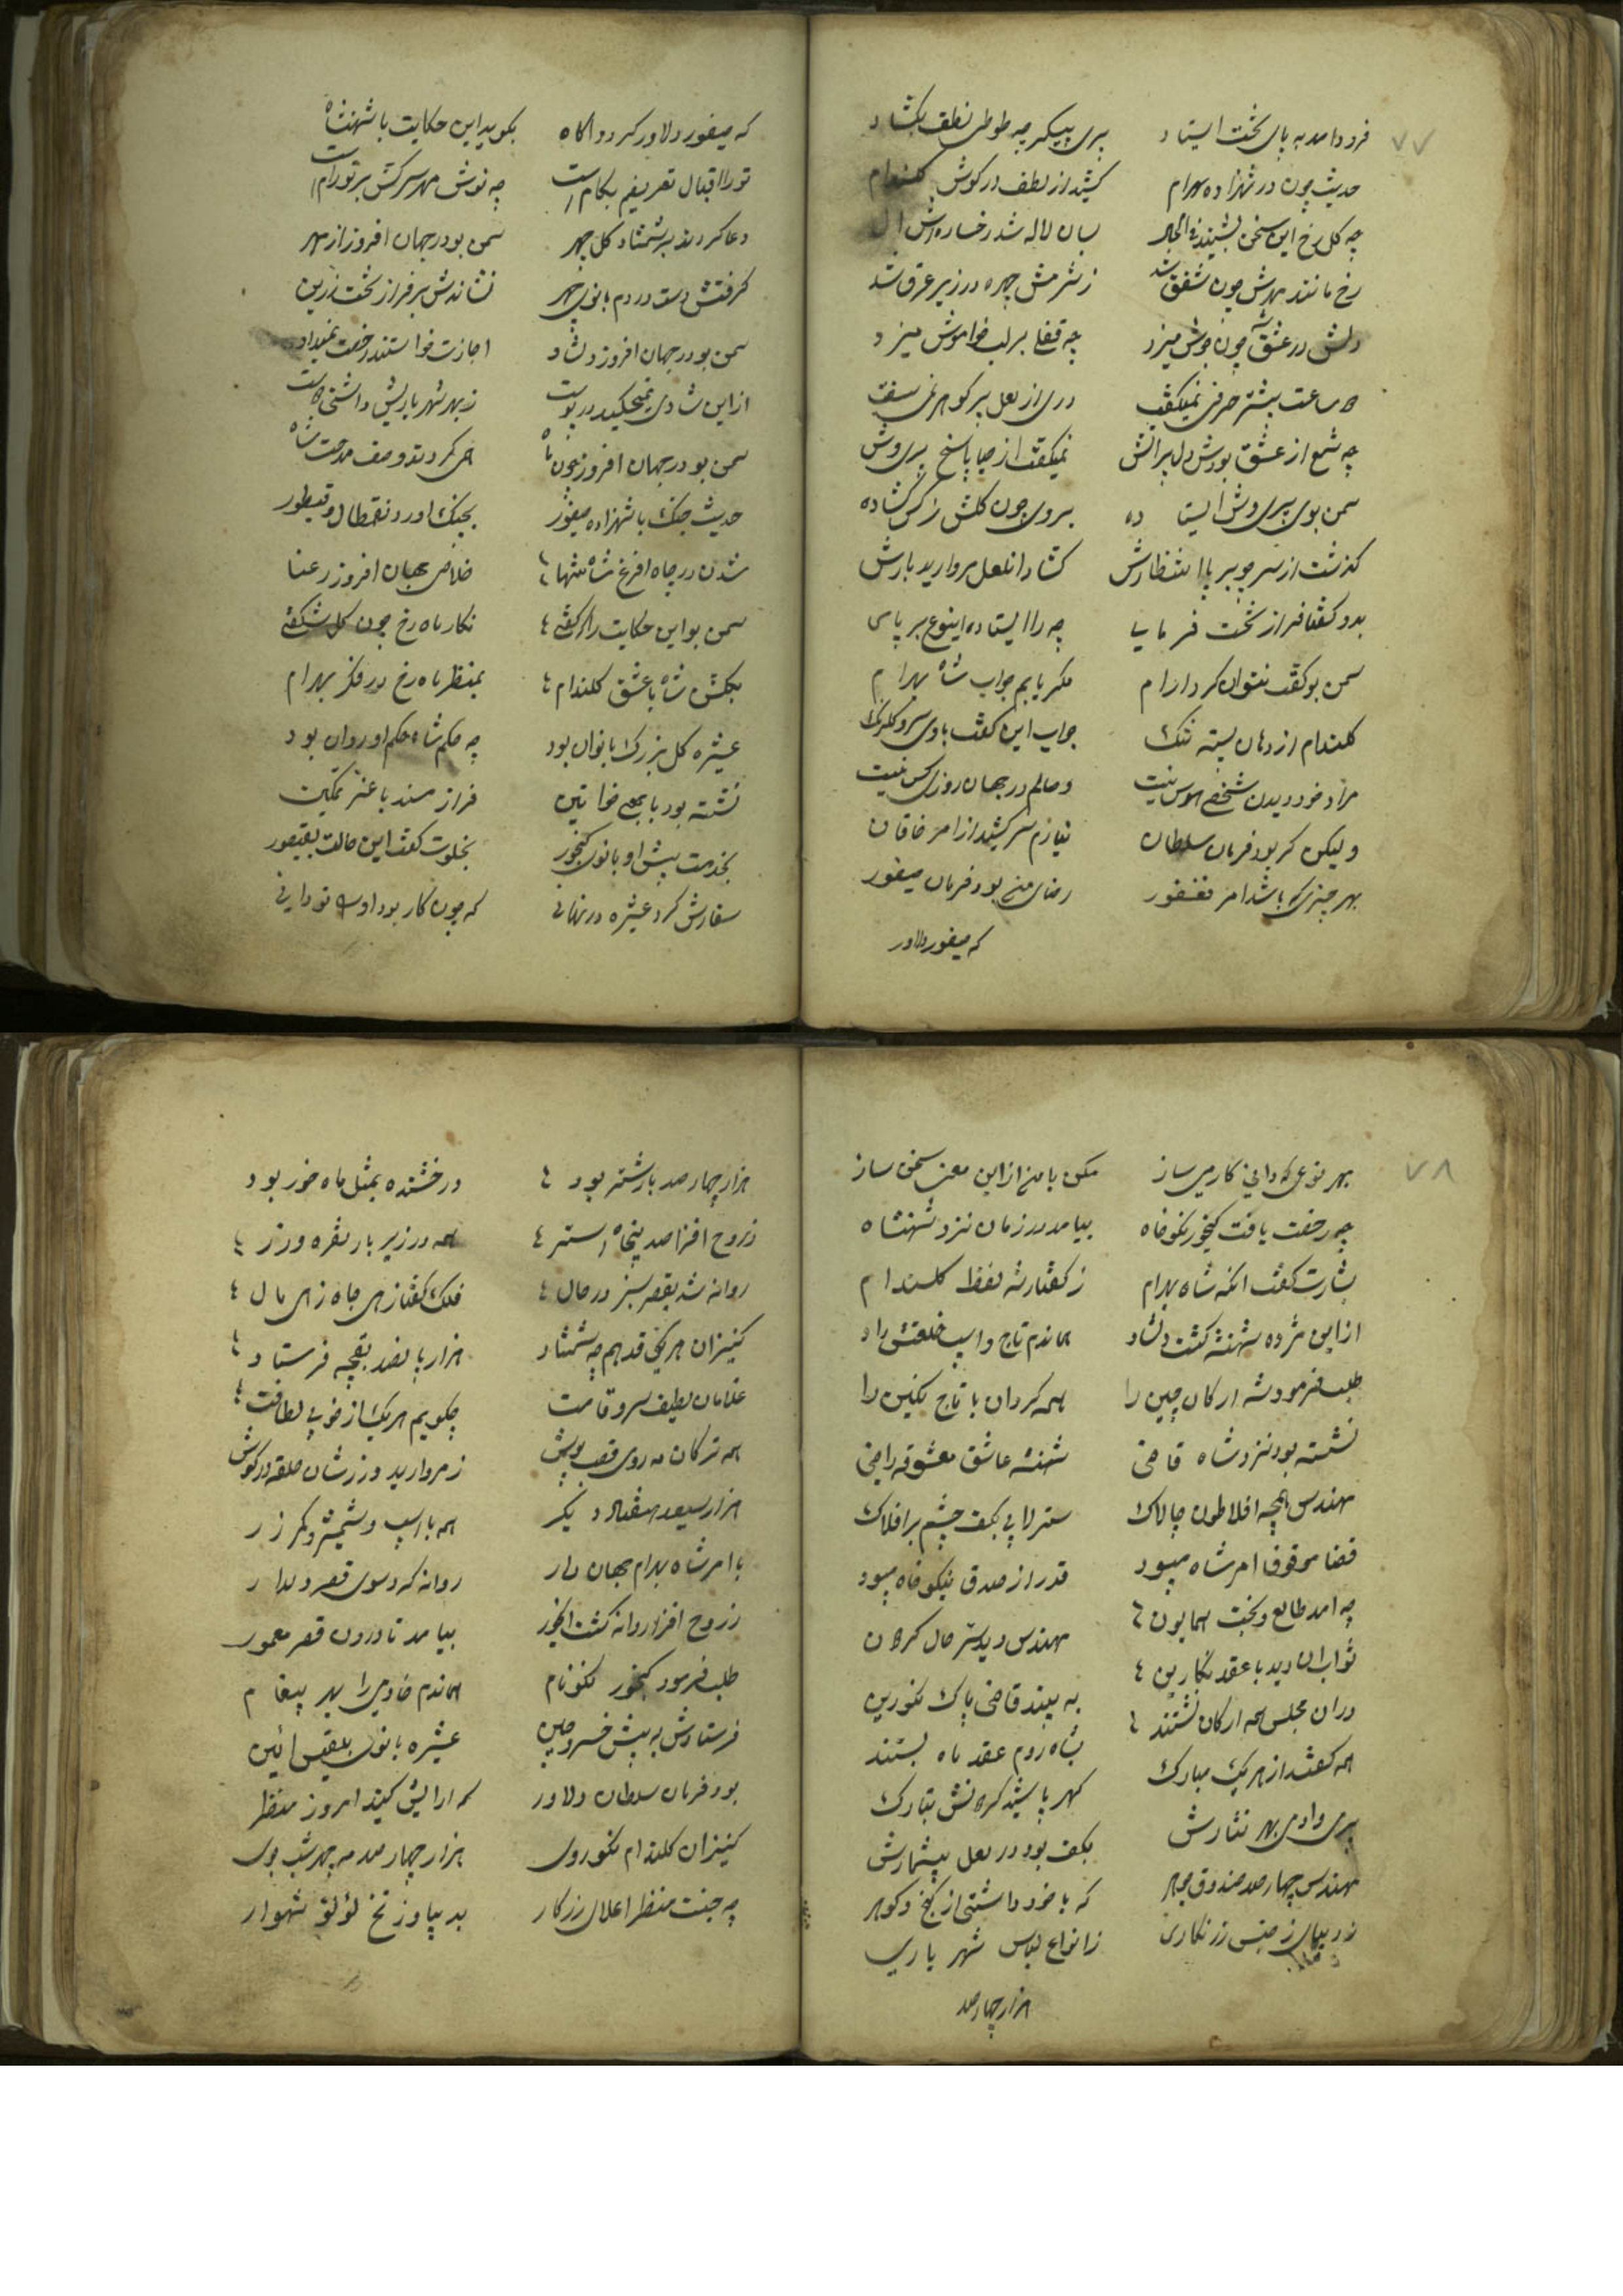 ۷۷
فرود امد به پای تخت ایستاد پری پیکر چه طوطی نطق بکشاد
حدیث چون در شهزاده بهرام کشید از لطف در کوش کلندام
چه کل رخ این سخن بشنید فی الحال بسان لاله شد رخساره اش ال
رخ مانند مهرش چون شفق شد ز شرمش چهره در زیر عرق شد
دلش در عشق چون جوش میزد چه قفل بر لب خواموش میزد
ساعت بیشتر حرفی نمیکفت دری از لعل پر کوهر نمی سفت
چه شمع از عشق بودش دل پر اتش نمیکفت از حیا پاسخ پری وش
سمن بوی پری وش ایستاده بروی چون کلش نرکس کشاده
کذشت از سر چو بر پا انتظارش کشاد از لعل مروارید بارش
بدو کفتا فراز تخت فرمایا چه را ایستاده اینوع بر پای
سمن بو کفت نتوان کرد ارام مکر یابم جواب شاه بهرام
کلندام از دهان پسته تنک جواب این کفت با وی سرو کلرنک
مراد خود دیدن شخصی هوس نیست وصالم در جهان روزی کس نیست
ولیکن کر بود فرمان سلطان نیارم سر کشید از امر خاقان
بهر چیزی که باشد امر فغفور رضای من بود فرمان صیفور
که صیفور دلاور
که صیفور دلاور کردد اکاه بکوید این حکایت با شهنشاه
تورا اقبال تعریفم بکام است چه نوش مهر سرکش بر تو رام است
دعا کردند بر شمشاد کل چهر سمن بو در جهان افروز از مهر
کرفتش دست در دم بانوی چهر نشاندش بر فراز تخت زرین
سمن بو در جهان افروز دلشاد اجازت خواستند رخصت نمیداد
از این شادی نمیکنجید در پوست ز بهر شهر یاریش داشتی دوست
سمن بو در جهان افروز چون ماه همی کردند وصف مدحت شاه
حدیث جنک با شهزاده صیفور بجنک اورد نقمطال و قیطور
شدن در چاه افرغ شاه تنها خلاص جهان افروز رعنا
سمن بو این حکایت را که کفتی نکار ماه رخ چون کل شکفتی
بکلشن شاه با عشق کلندام بمنظر ماه رخ در فکر بهرام
عشیره کل بزرک بانوان بود چه حکم شاه حکم او روان بود
نشسته بود با جمعی خواتین فراز مسند با عز تمکین
بخدمت پیش او بانوی کنجور بخلوت کفت این حالت بقیصور
سفارش کرد عشیره در نهانی که چون کار بود اوست تو دانی
۷۸
بهر نوعی که دانی کار می ساز مکن با من از این معنی سخن ساز
چه رخصت یافت کنجور نکوخاه بیامد در زمان نزد شهنشاه
بشارت کفت انکه شاه بهرام ز کفتارشه لفظ کلندام
از این مژده شهنشه کشت دلشاد هماندم تاج و اسب خلعتش داد
طلب فرمود شه ارکان چین را همه کردان با تاج نکین را
نشسته بود نزد شاه قاضی شهنشه عاشق معشوقه راضی
مهندس همچه افلاطون چالاک سترلابی بکف چشم بر افلاک
قضا موقوف امر شاه میبود قدر از صدق نیکوخاه میبود
چه امد طالع و بخت همایون مهندس دید سر حال کردون
ثواب ان دید با عقد نکارین به بیند قاضی پاک نکورین
در ان مجلس همه ارکان نشستند بشاه روم عقد ماه بستند
همه کفتند از هر یک مبارک کهر پاشید کردنش تبارک
پری دادی بهر نثارش بکف بود در لعل بیشمارش
مهندس چهار صد صندوق جوهر که با خود داشتی از کنج و کوهر
ز دیبای ز جنس زرنکاری ز انواع لباس شهر یاری
هزار چهار صد
هزار چهار صد بار شتر بود درخشنده بمثل ماه خور بود
ز روح افزا صد پنجاه استر همه در زیر بار نقره و زر
روانه شد بقصر سبز در حال فلک کفتا زهی جاه زهی مال
کنیزان هر یکی قد هم چه شمشاد هزار پانصد بقچه فرستاد
غلامان لطیف سرو قامت چکویم هر یک از خوبی لطافت
همه ترکان مه روی قصب پوش ز مروارید و زرشان حلقه در کوش
هزار سیصد هفتاد دیکر همه با اسب و شمشیر و کمر زر
با امر شاه بهرام جهان دار روانه کرد سوی قصر دلدار
ز روح افزا روانه کشت کنجور بیامد تا درون قصر معمور
طلب فرمود کنجور نکو نام هماندم خادمی را بهر پیغام
فرستادش به پیش خسرو چین عشیره بانوی بلقیس ائین
بود فرمان سلطان دلاور که ارایش کنید امروز منظر
کنیزان کلندام نکوروی هزار چهار صد مه چهر شب بوی
چه جنت منظر اعلای زر کار بدیبا و ز نخ لؤلؤ شهوار